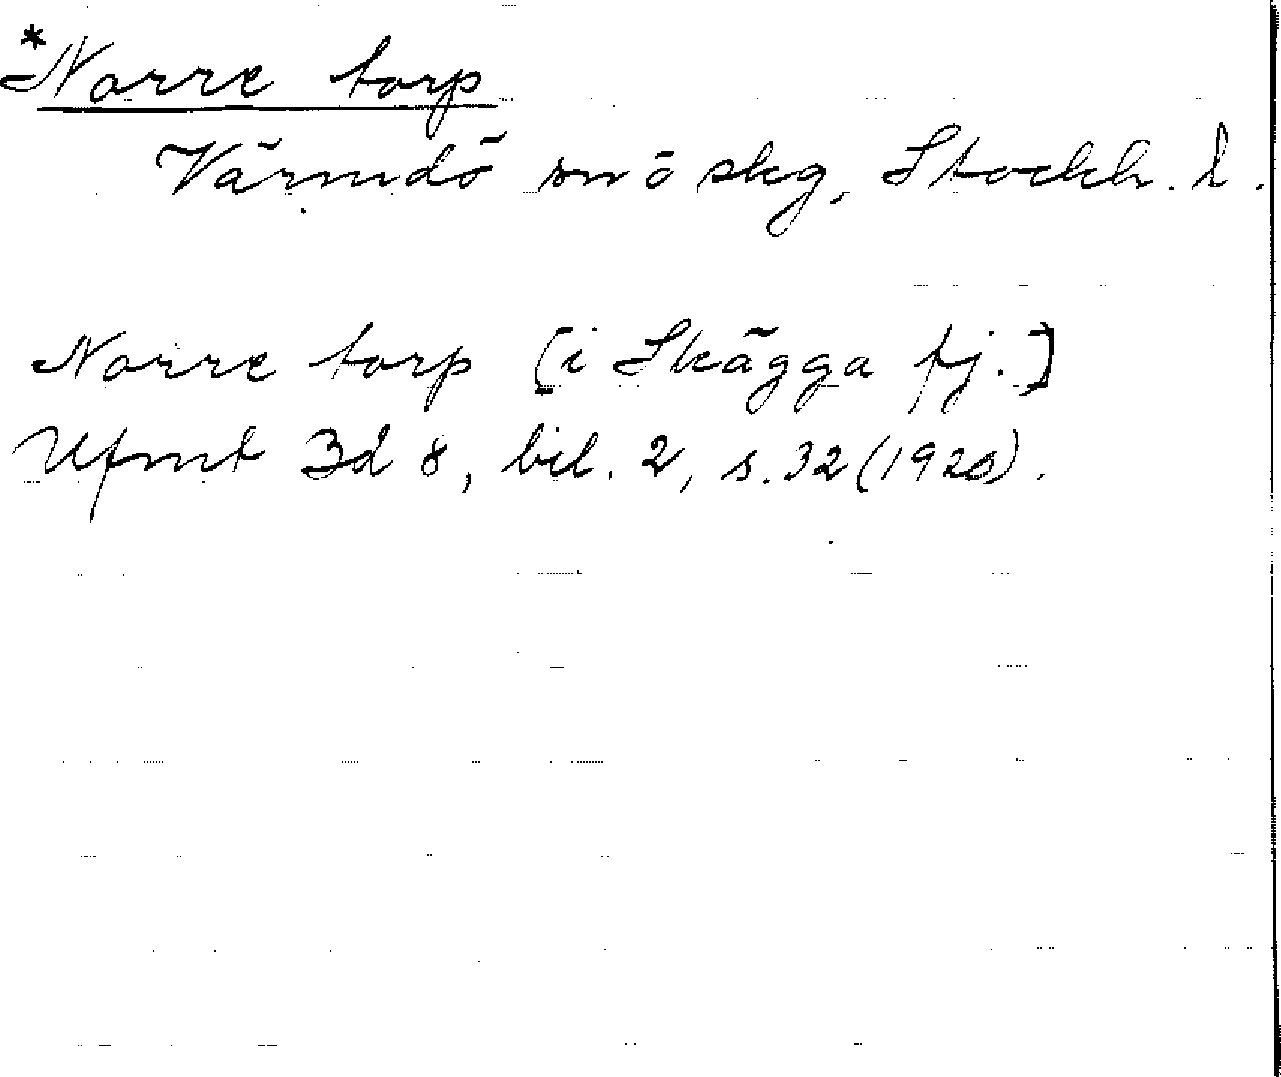 *Norre torp
Värmdö snö skg, Stockh. l.
Norre torp [i Skägga fj.]
Ufmt Bd 8, bil. 2, s. 32 (1920).